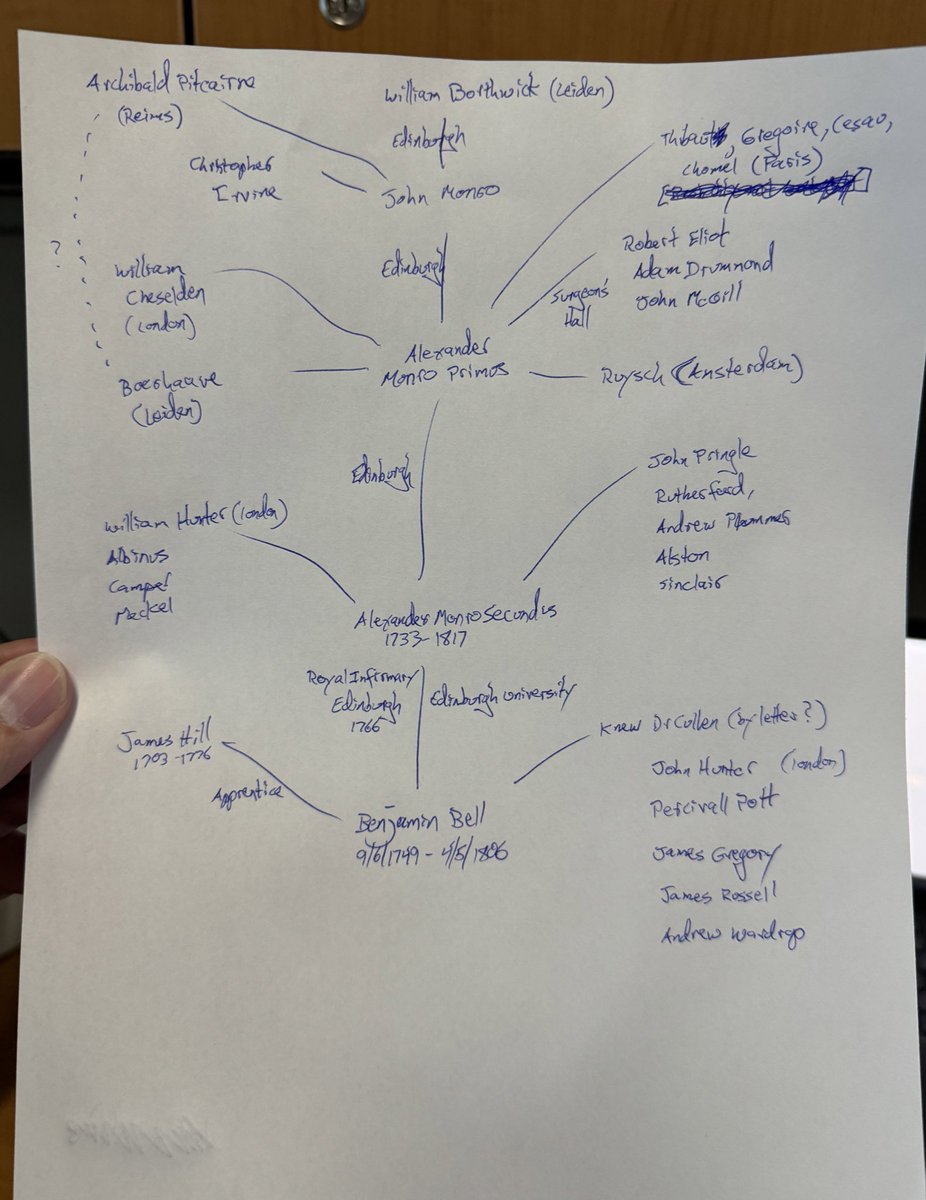 Archibald Pitcairne
(Reims)
William Borthwick (Leiden)
Edinburgh
Thibaut, Gregoire, Cesau,
Chomel (Paris)
Christopher
Irvine
John Monro
?
William
Cheselden
(London)
Edinburgh
Robert Eliot
Adam Drummond
John McGill
Surgeon's
Hall
Alexander
Monro Primus
Boerhaave
(Leiden)
Ruysch (Amsterdam)
Edinburgh
John Pringle
Rutherford,
Andrew Plummer
Alston
Sinclair
William Hunter (London)
Albinus
Camper
Meckel
Alexander Monro Secundus
1733-1817
Royal Infirmary
Edinburgh
1766
Edinburgh University
James Hill
1703-1776
Apprentice
Knew Dr Cullen (by letter?)
John Hunter (London)
Percivall Pott
James Gregory
James Russell
Andrew Wardrop
Benjamin Bell
9/6/1749 - 4/5/1806